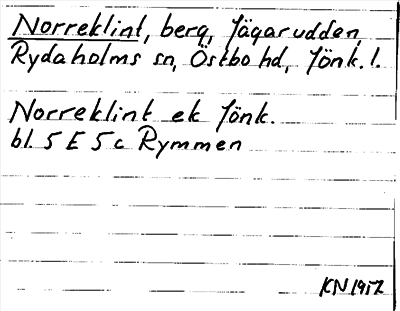 Norreklint, berg, Jägarudden
Rydaholms sn, Östbo hd, Jönk. l.
Norreklint ek Jönk.
bl. 5 E 5 c Rymmen
KN 1972